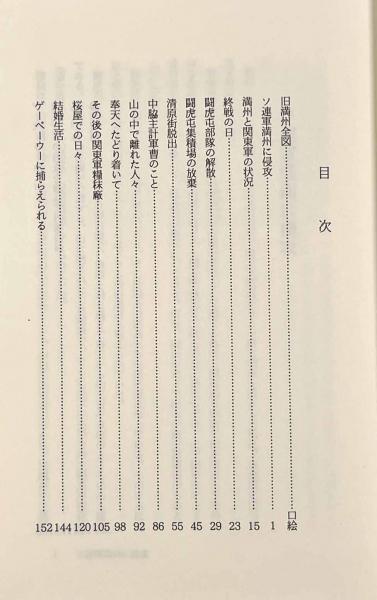 目次
旧満州全図……口絵
ソ連軍満州に侵攻……1
満州と関東軍の状況……15
終戦の日……23
闘虎屯部隊の解散……29
闘虎屯集積場の放棄……45
清原街脱出……55
中脇主計軍曹のこと……86
山の中で離れた人々……92
奉天へたどり着いて……98
その後の関東軍糧秣廠……105
桜屋での日々……120
結婚生活……144
ゲーペーウーに捕らえられる……152